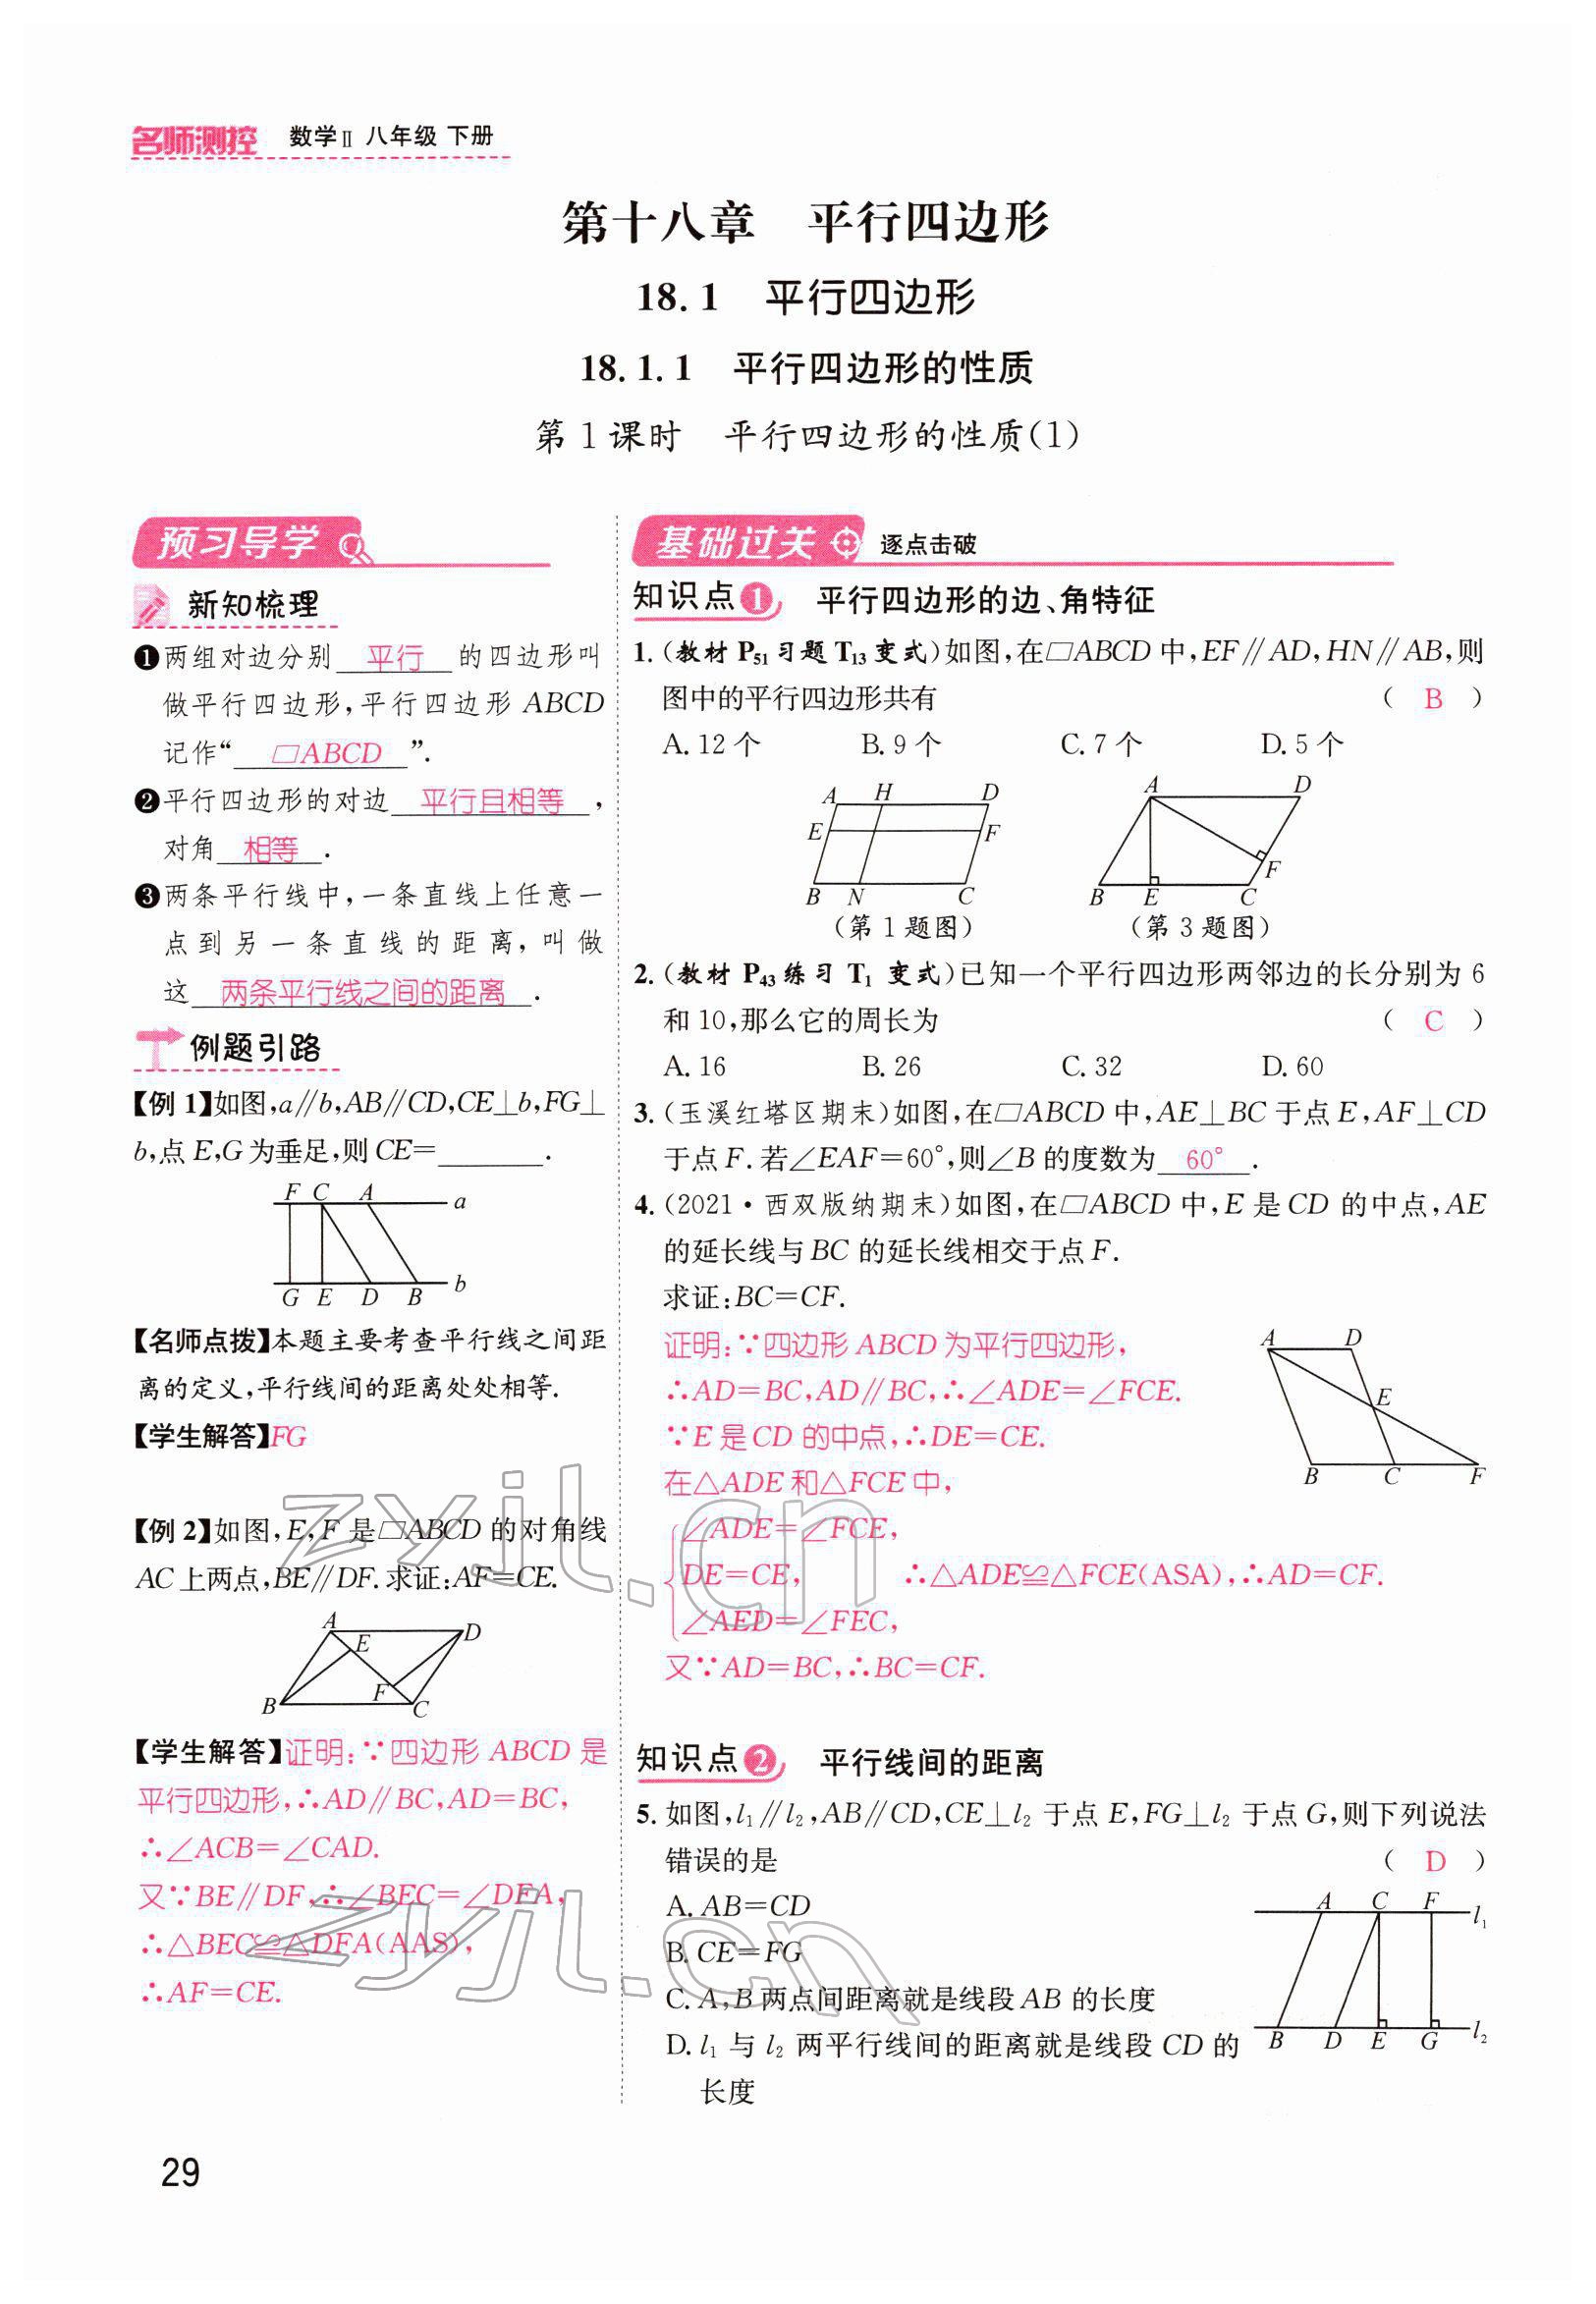 名师测控 数学Ⅱ 八年级 下册
第十八章 平行四边形
18.1 平行四边形
18.1.1 平行四边形的性质
第1课时 平行四边形的性质(1)
预习导学
新知梳理
❶两组对边分别 平行 的四边形叫
做平行四边形,平行四边形 ABCD
记作“ ▱ABCD ”.
❷平行四边形的对边 平行且相等 ,
对角 相等 .
❸两条平行线中,一条直线上任意一
点到另一条直线的距离,叫做
这 两条平行线之间的距离 .
例题引路
【例1】如图,a∥b,AB∥CD,CE⊥b,FG⊥
b,点E,G为垂足,则CE=________.
F C A a
G E D B b
【名师点拨】本题主要考查平行线之间距
离的定义,平行线间的距离处处相等.
【学生解答】FG
【例2】如图,E,F是▱ABCD的对角线
AC上两点,BE∥DF.求证:AF=CE.
A D
E
F
B C
【学生解答】证明:∵四边形ABCD是
平行四边形,∴AD∥BC,AD=BC,
∴∠ACB=∠CAD.
又∵BE∥DF,∴∠BEC=∠DFA,
∴△BEC≌△DFA(AAS),
∴AF=CE.
基础过关 逐点击破
知识点1 平行四边形的边、角特征
1.(教材P51习题T13变式)如图,在▱ABCD中,EF∥AD,HN∥AB,则
图中的平行四边形共有 ( B )
A.12个 B.9个 C.7个 D.5个
A H D
E F
B N C
(第1题图)
A D
F
B E C
(第3题图)
2.(教材P43练习T1变式)已知一个平行四边形两邻边的长分别为6
和10,那么它的周长为 ( C )
A.16 B.26 C.32 D.60
3.(玉溪红塔区期末)如图,在▱ABCD中,AE⊥BC于点E,AF⊥CD
于点F.若∠EAF=60°,则∠B的度数为 60° .
4.(2021·西双版纳期末)如图,在▱ABCD中,E是CD的中点,AE
的延长线与BC的延长线相交于点F.
求证:BC=CF.
证明:∵四边形ABCD为平行四边形,
∴AD=BC,AD∥BC,∴∠ADE=∠FCE.
∵E是CD的中点,∴DE=CE.
在△ADE和△FCE中,
∠ADE=∠FCE,
DE=CE, ∴△ADE≌△FCE(ASA),∴AD=CF.
∠AED=∠FEC,
又∵AD=BC,∴BC=CF.
A D
E
B C F
知识点2 平行线间的距离
5.如图,l1∥l2,AB∥CD,CE⊥l2于点E,FG⊥l2于点G,则下列说法
错误的是 ( D )
A.AB=CD
B.CE=FG
C.A,B两点间距离就是线段AB的长度
D.l1与l2两平行线间的距离就是线段CD的
长度
A C F l1
B D E G l2
29
zyjl.cn
zyjl.cn